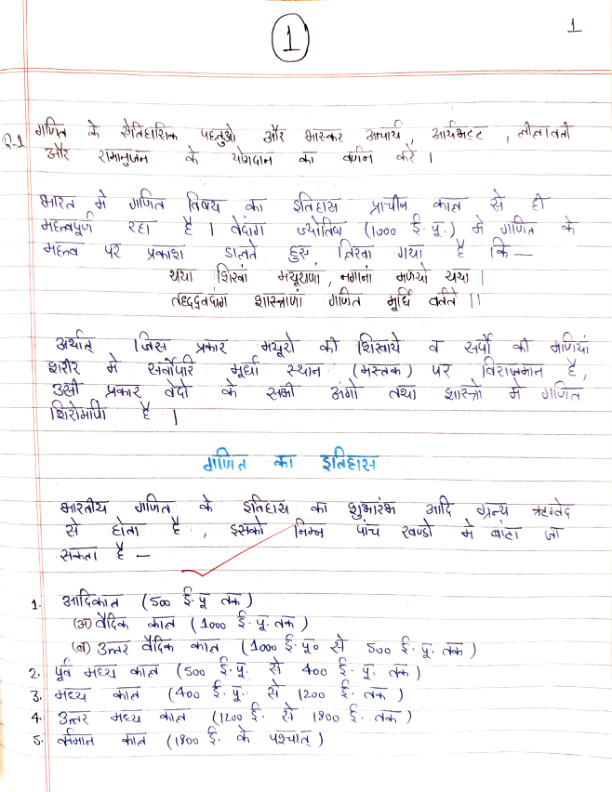 1
1
Q-1 गणित के ऐतिहासिक पहलुओ और भास्कर आचार्य, आर्यभट्ट, लीलावती
और रामानुजन के योगदान का वर्णन करें ।
भारत मे गणित विषय का इतिहास प्राचीन काल से ही
महत्वपूर्ण रहा है । वेदांग ज्योतिष (1000 ई.पू.) मे गणित के
महत्व पर प्रकाश डालते हुए लिखा गया है कि—
यथा शिखा मयूराणां, नगानां मणयो यथा ।
तद्वद्वेदांग शास्त्राणां गणित मूर्ध्नि वर्तते ।।
अर्थात् जिस प्रकार मयूरो की शिखाये व सर्पो की मणियां
शरीर मे सर्वोपरि मूर्धा स्थान (मस्तक) पर विराजमान है,
उसी प्रकार वेदो के सभी अंगो तथा शास्त्रो मे गणित
शिरोमणि है ।
गणित का इतिहास
भारतीय गणित के इतिहास का शुभारंभ आदि ग्रन्थ ऋग्वेद
से होता है, इसको निम्न पांच खण्डो मे बांटा जा
सकता है —
1. आदिकाल (500 ई.पू तक)
(अ) वैदिक काल (1000 ई.पू. तक)
(ब) उत्तर वैदिक काल (1000 ई.पू० से 500 ई.पू. तक)
2. पूर्व मध्य काल (500 ई.पू. से 400 ई.पू. तक)
3. मध्य काल (400 ई.पू. से 1200 ई. तक)
4. उत्तर मध्य काल (1200 ई. से 1800 ई. तक)
5. वर्तमान काल (1800 ई. के पश्चात्)